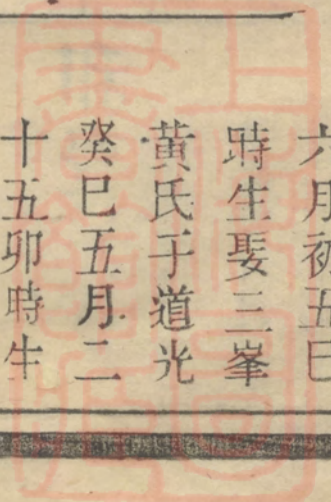 六月初五巳
時生娶三峯
黃氏于道光
癸巳五月二
十五卯時生